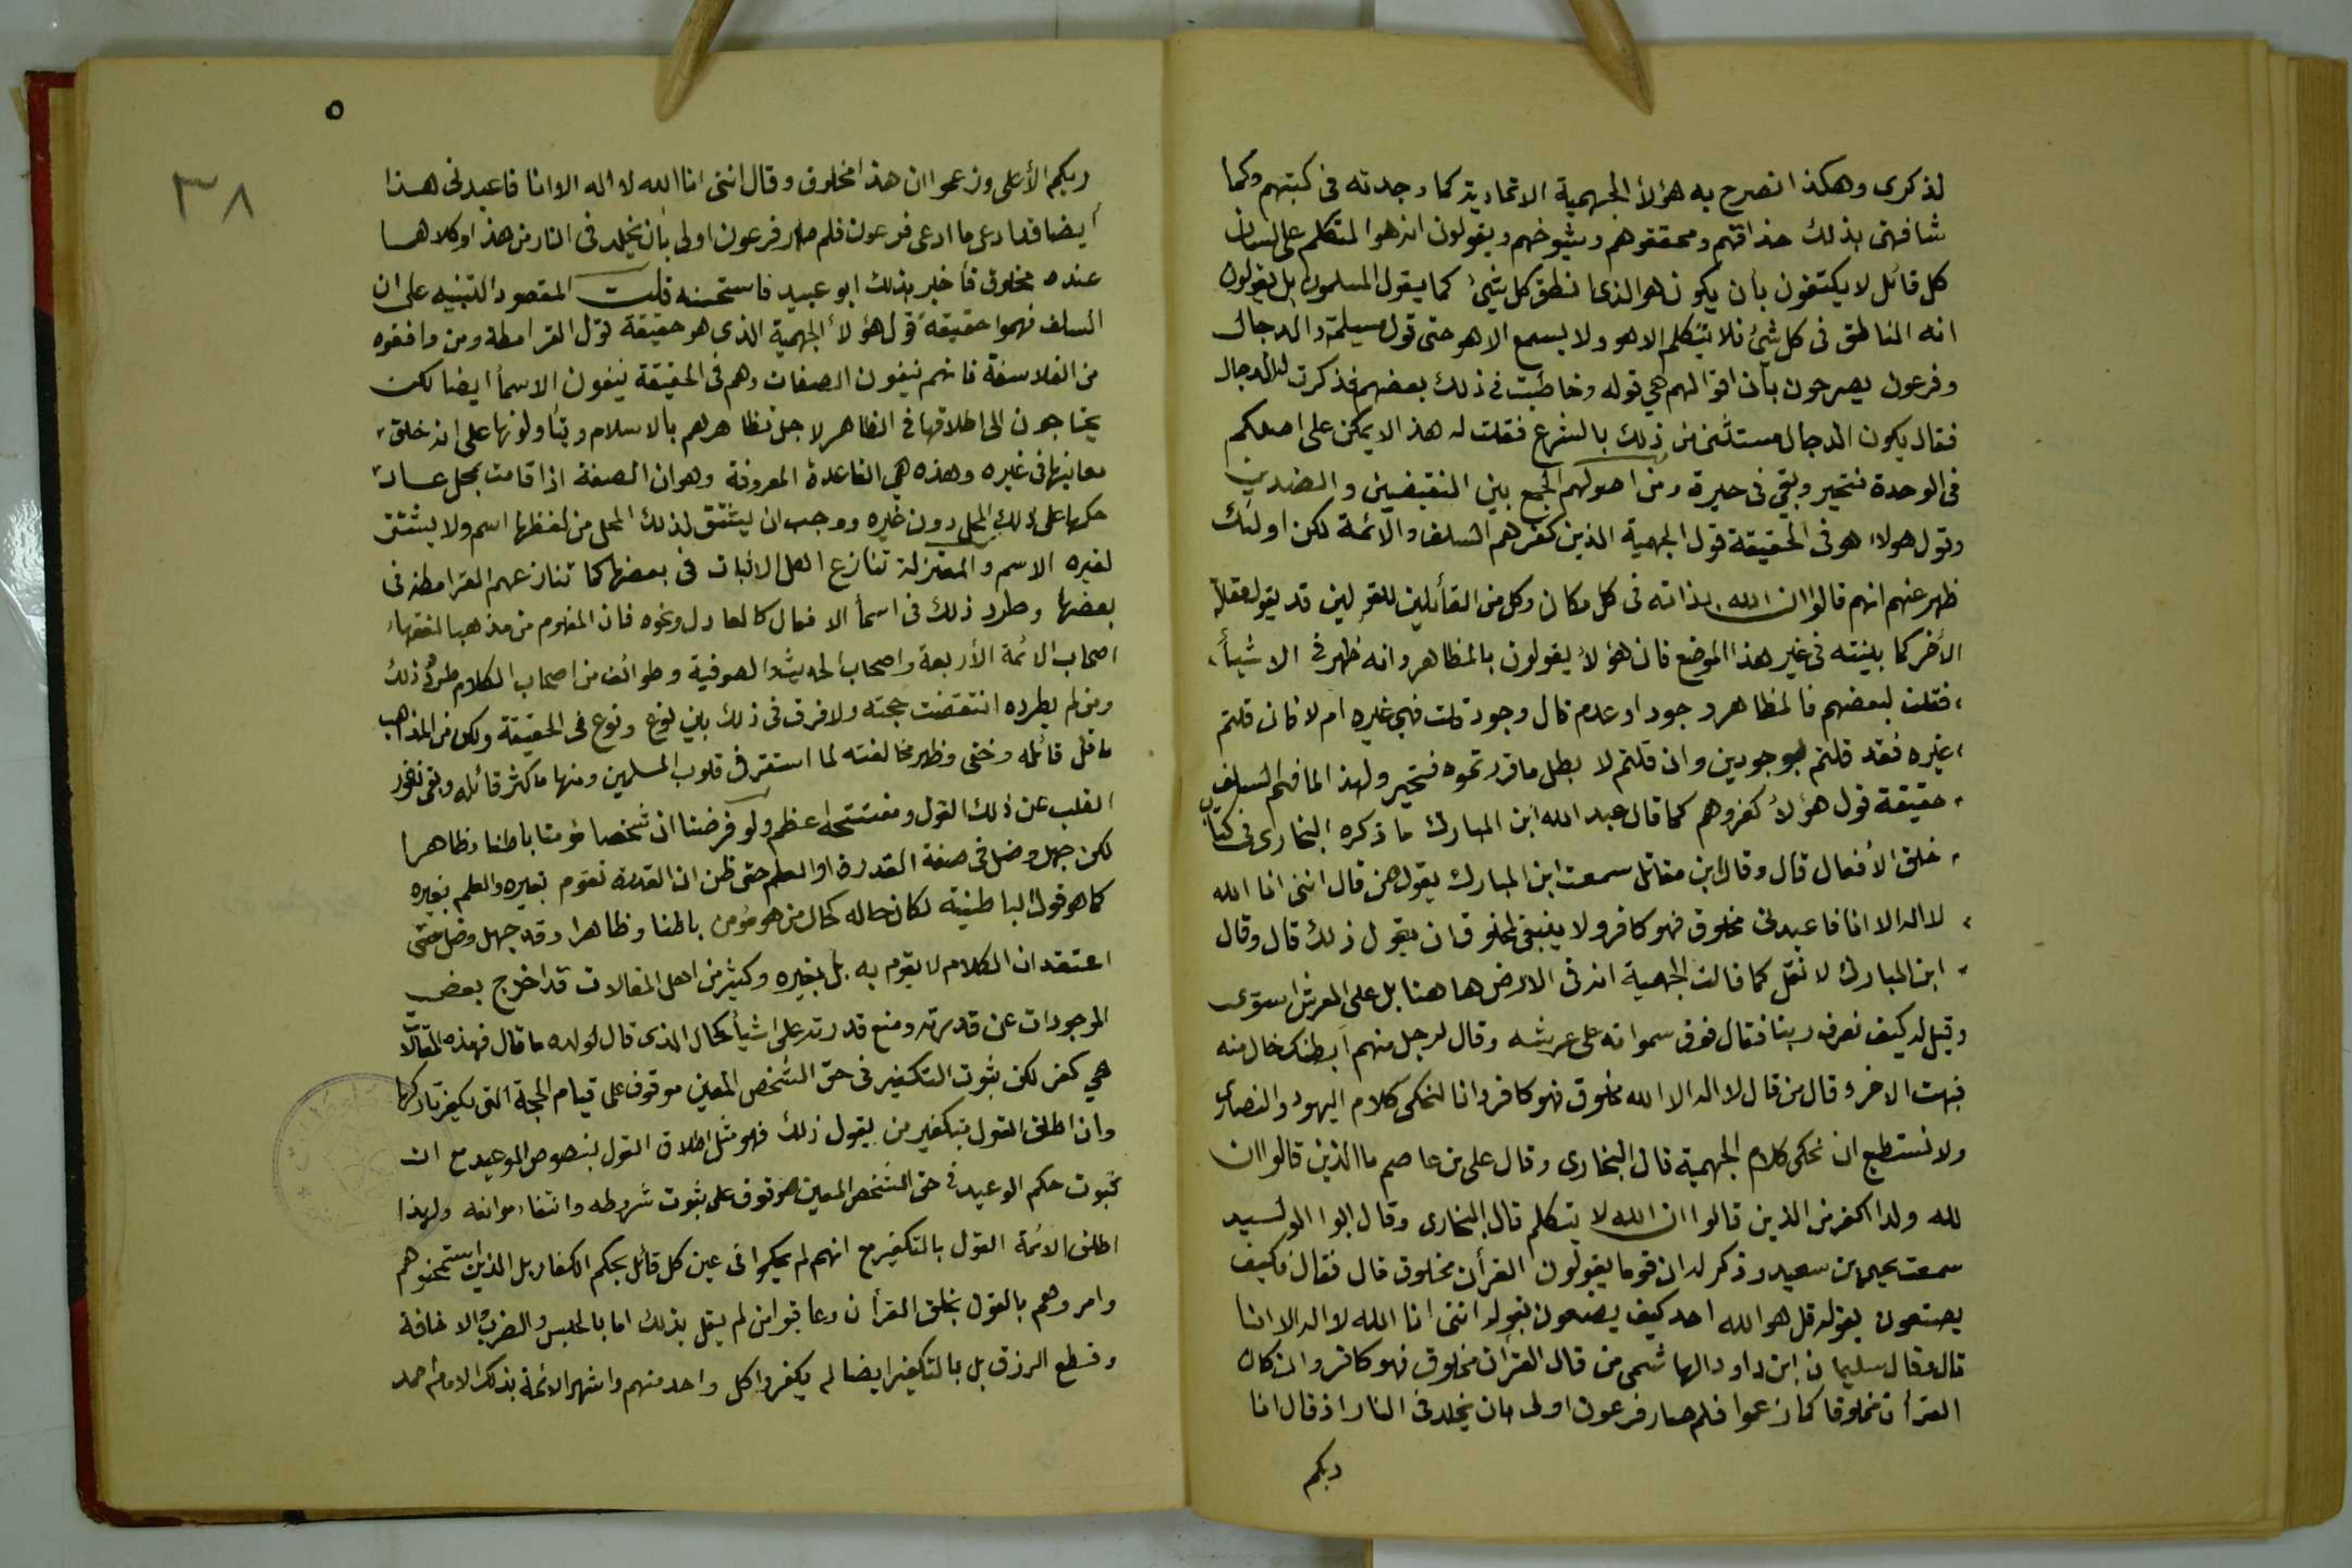 لذكرى وهكذا تصرح به هؤلأ الجهمية الاتحادية كما وجدته فى كتبهم وكما
شافهنى بذلك حذاقهم ومحققوهم وشيوخهم ويقولون انه هو المتكلم على لسان
كل قائل لا يكتفون بأن يكون هو الذى انطق كل شيئ كما يقول المسلمون بل يقولون
انه الناطق فى كل شيئ فلا يتكلم الا هو ولا يسمع الا هو حتى قول مسيلمة والدجال
وفرعون يصرحون بأن اقوالهم هي قوله وخاطبت فى ذلك بعضهم فذكرت له الدجال
فقال يكون الدجال مستثنى من ذلك بالشرع فقلت له هذا لا يمكن على اصلكم
فى الوحدة فتحير وبقي فى حيرة ومن اصولهم الجمع بين النقيضين والضدين
وقول هولاء هو فى الحقيقة قول الجهمية الذين كفرهم السلف والائمة لكن اولئك
ظهر عنهم انهم قالوا ان الله بذاته فى كل مكان وكل من القائلين للقولين قد يقول مقالة
الأخر كما بينته فى غير هذا الموضع فان هؤلأ يقولون بالمظاهر وانه ظهر فى الاشيأ،
، فقلت لبعضهم فالمظاهر وجود او عدم قال وجود قلت فهي غيره ام لا فان قلتم
، غيره فقد قلتم بوجودين وان قلتم لا بطل ما قررتموه فتحير ولهذا لما فهم السلف
، حقيقة قول هؤلأ كفروهم كما قال عبد الله ابن المبارك ما ذكره البخارى فى كتاب
، خلق الأفعال قال وقال ابن مقاتل سمعت ابن المبارك يقول من قال اننى انا الله
، لا اله الا انا فاعبدنى مخلوق فهو كافر ولا ينبغى لمخلوق ان يقول ذلك قال وقال
، ابن المبارك لا نقل كما قالت الجهمية انه فى الارض هاهنا بل على العرش استوى
وقيل له كيف نعرف ربنا فقال فوق سمواته على عرشه وقال لرجل منهم أبطنك خال منه
فبهت الاخر وقال من قال لا اله الا الله مخلوق فهو كافر وانا لنحكى كلام اليهود والنصارى
ولا نستطيع ان نحكى كلام الجهمية قال البخارى وقال على بن عاصم ما الذين قالوا ان
لله ولدا اكفر من الذين قالوا ان الله لا يتكلم قال البخارى وقال ابوا الوليد
سمعت يحيى بن سعيد وذكر له ان قوما يقولون القرأن مخلوق قال فقال فكيف
يصنعون بقوله قل هو الله احد كيف يصنعون بقوله اننى انا الله لا اله الا انا
قال وقال سليمان ابن داود الهاشمى من قال القرأن مخلوق فهو كافر وان كان
القرأن مخلوقا كما زعموا فلم صار فرعون اولى بان يخلد فى النار اذ قال انا
ربكم
٥
٣٨
ربكم الأعلى وزعموا ان هذا مخلوق وقال اننى انا الله لا اله الا انا فاعبدنى هذا
أيضا قد ادعى ما ادعى فرعون فلم صار فرعون اولى بأن يخلد فى النار من هذا وكلاهما
عنده مخلوق فأخبر بذلك ابو عبيد فاستحسنه قلت المقصود التنبيه على ان
السلف فهموا حقيقة قول هؤلأ الجهمية الذى هو حقيقة قول القرامطة ومن وافقوه
من الفلاسفة فانهم ينفون الصفات وهم فى الحقيقة ينفون الاسمأ ايضا لكن
يحتاجون الى اطلاقها فى الظاهر لاجل تظاهرهم بالاسلام ويتأولونها على انه خلق،
معانيها فى غيره وهذه هي القاعدة المعروفة وهو ان الصفة اذا قامت بمحل عاد،
حكمها على ذلك المحل دون غيره ووجب ان يشتق لذلك المحل من لفظها اسم ولا يشتق
لغيره الاسم والمعتزلة تنازع اهل الاثبات فى بعضها كما تنازعهم القرامطة فى
بعضها وطرد ذلك فى اسمأ الافعال كالعادل ونحوه فان المفهوم من مذهب الفقهاء
اصحاب الائمة الأربعة واصحاب الحديث والصوفية وطوائف من اصحاب الكلام طرد ذلك
ومن لم يطرده انتقضت حجته ولا فرق فى ذلك بين نوع ونوع فى الحقيقة ولكن من المذاهب
ما قل قائله وخفى وظهر مخالفته لما استقر فى قلوب المسلمين ومنها ما كثر قائله وبقى نفور
القلب عن ذلك القول ومفتتحه اعظم ولو فرضنا ان شخصا مؤمنا باطنا وظاهرا
لكن جهل وضل فى صفة القدرة او العلم حتى ظن ان القدرة تقوم بغيره والعلم بغيره
كما هو قول الباطنية لكان حاله كحال من هو مؤمن باطنا وظاهرا وقد جهل وضل حتى
اعتقد ان الكلام لا يقوم به بل بغيره وكثير من اهل المقالات قد اخرج بعض
الموجودات عن قدرته ومنع قدرته على اشيأ كحال الذى قال لولده ما قال فهذه المقالات
هي كفر لكن ثبوت التكفير فى حق الشخص المعين موقوف على قيام الحجة التى يكفر تاركها
وان اطلق القول بتكفير من يقول ذلك فهو مثل اطلاق القول بنصوص الوعيد مع ان
ثبوت حكم الوعيد فى حق الشخص المعين موقوف على ثبوت شروطه وانتفاء موانعه ولهذا
اطلق الائمة القول بالتكفير مع انهم لم يحكموا فى عين كل قائل بحكم الكفار بل الذين استمحنوهم
وامروهم بالقول بخلق القرأن وعاقبوا من لم يقل بذلك اما بالحبس والضرب والاخافة
وقطع الرزق بل بالتكفير ايضا لم يكفروا كل واحد منهم واشهر الائمة بذلك الامام احمد